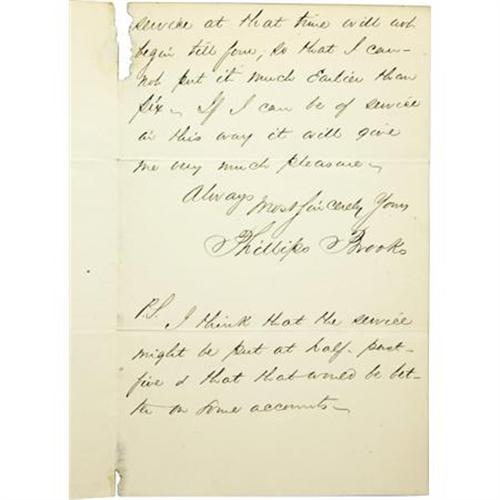 service at that time will not
begin till four, so that I can-
not put it much Earlier than
six – If I can be of service
in this way it will give
me very much pleasure –
Always
Most Sincerely Yours
Phillips Brooks
P.S.
I think that the service
might be put at half-past-
five & that that would be bet-
ter on some accounts –